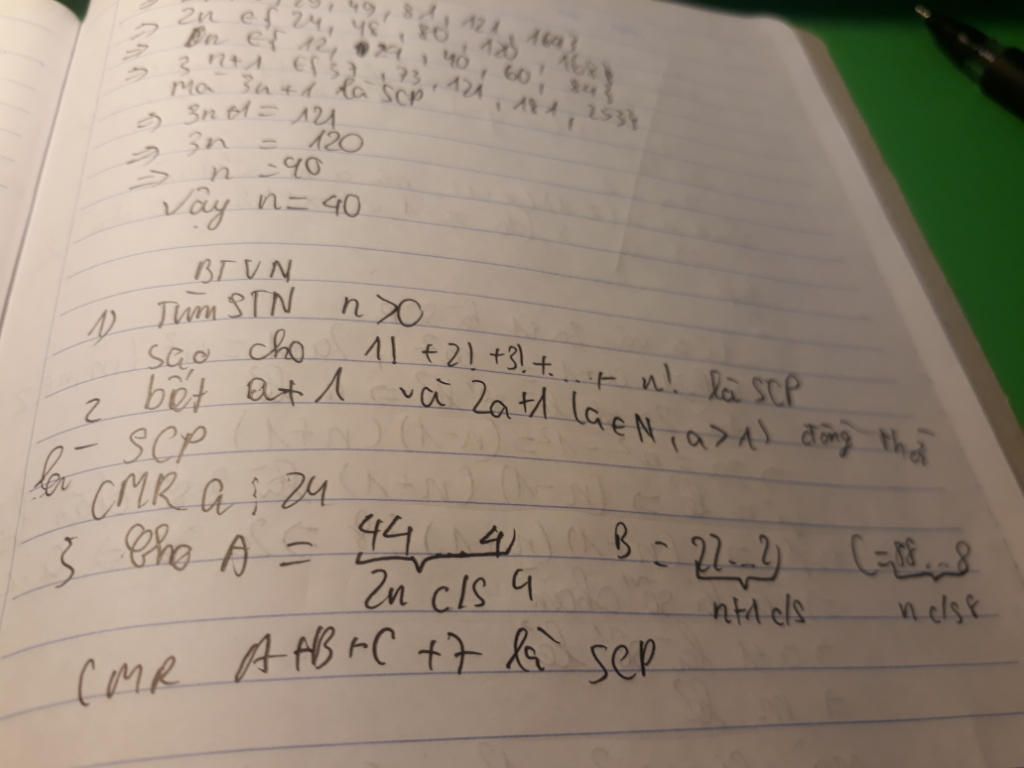 29, 49, 81, 121, 169}
⇒ 2n ∈ { 24, 48, 80, 120, 168}
⇒ n ∈ { 12, 24, 40, 60, 84}
⇒ 3n+1 ∈ { 37, 73, 121, 181, 253}
mà 3n+1 là SCP
⇒ 3n+1 = 121
⇒ 3n = 120
⇒ n = 40
Vậy n = 40
BTVN
1) Tìm STN n > 0
sao cho 1! + 2! + 3! + ... + n! là SCP
2 biết a+1 và 2a+1 (a ∈ N, a > 1) đồng thời
là SCP
CMR a ⋮ 24
3 Cho A = 44...4 B = 22...2 C = 88...8
2n c/s 4 n+1 c/s n c/s 8
CMR A+B+C+7 là SCP